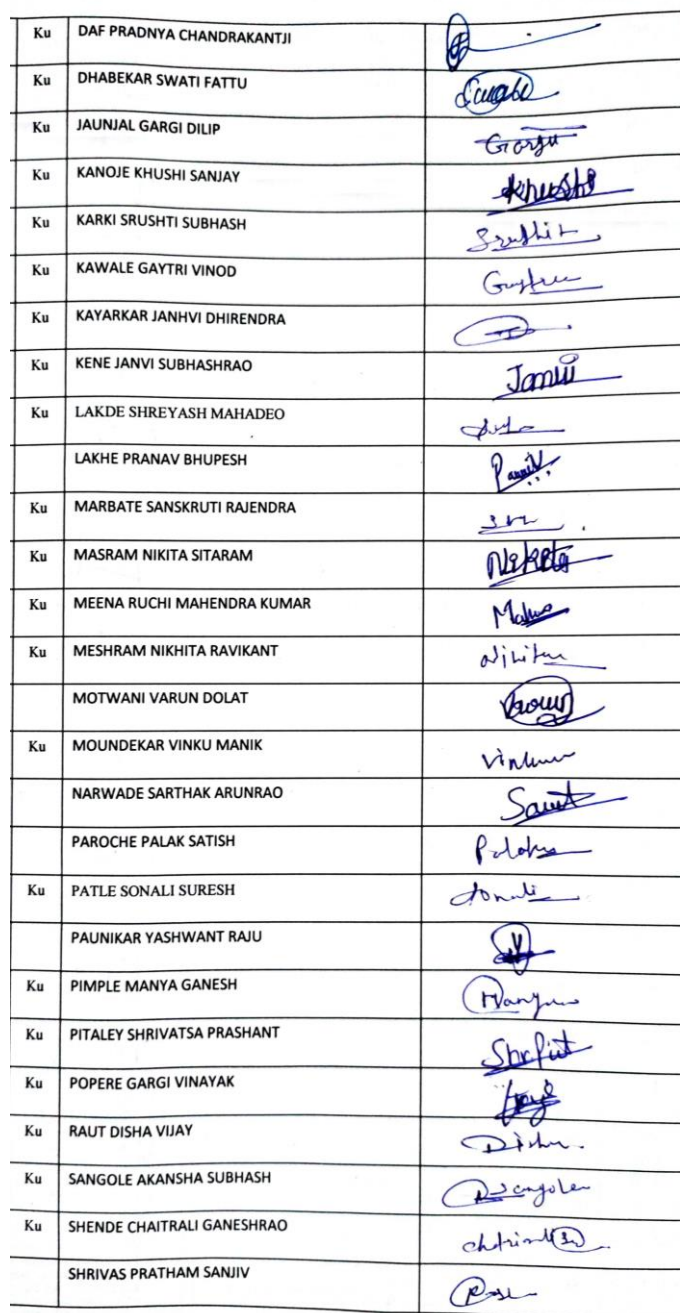 Ku DAF PRADNYA CHANDRAKANTJI
Ku DHABEKAR SWATI FATTU Swati
Ku JAUNJAL GARGI DILIP Gargi
Ku KANOJE KHUSHI SANJAY Khushi
Ku KARKI SRUSHTI SUBHASH
Ku KAWALE GAYTRI VINOD
Ku KAYARKAR JANHVI DHIRENDRA
Ku KENE JANVI SUBHASHRAO Janvi
Ku LAKDE SHREYASH MAHADEO
LAKHE PRANAV BHUPESH
Ku MARBATE SANSKRUTI RAJENDRA
Ku MASRAM NIKITA SITARAM Nikita
Ku MEENA RUCHI MAHENDRA KUMAR
Ku MESHRAM NIKHITA RAVIKANT
MOTWANI VARUN DOLAT Varun
Ku MOUNDEKAR VINKU MANIK Vinku
NARWADE SARTHAK ARUNRAO
PAROCHE PALAK SATISH Palak
Ku PATLE SONALI SURESH Sonali
PAUNIKAR YASHWANT RAJU
Ku PIMPLE MANYA GANESH Manya
Ku PITALEY SHRIVATSA PRASHANT
Ku POPERE GARGI VINAYAK
Ku RAUT DISHA VIJAY Disha
Ku SANGOLE AKANSHA SUBHASH Sangole
Ku SHENDE CHAITRALI GANESHRAO
SHRIVAS PRATHAM SANJIV